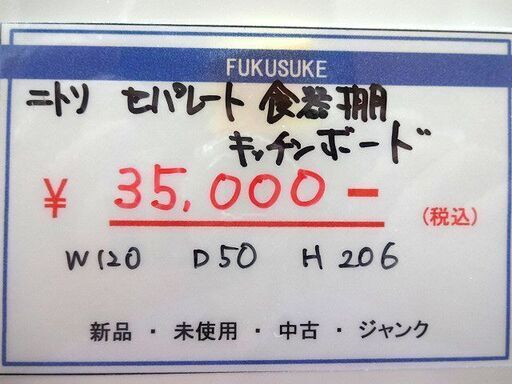 FUKUSUKE
ニトリ セパレート 食器棚
キッチンボード
¥ 35,000-
(税込)
W120 D50 H206
新品・未使用・中古・ジャンク